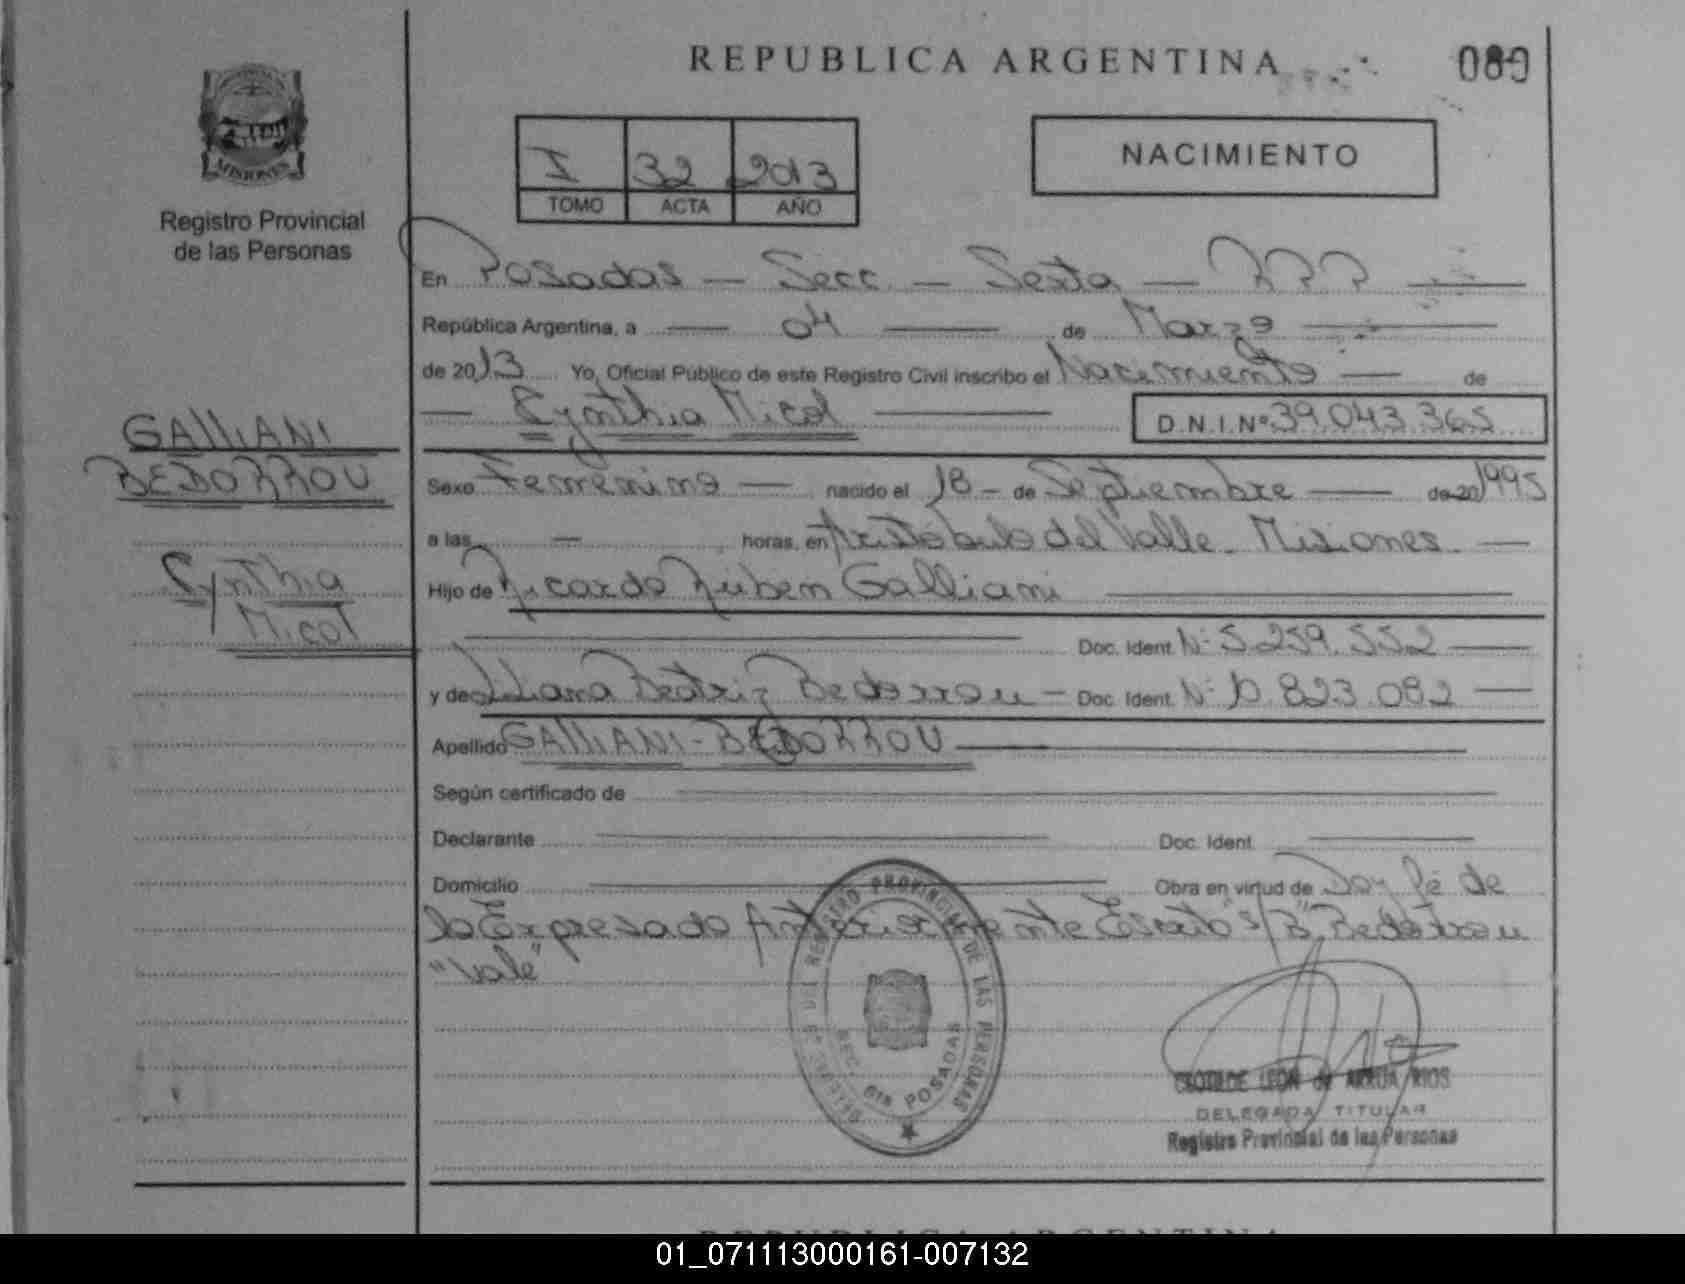 REPUBLICA ARGENTINA
080
MISIONES
Registro Provincial
de las Personas
I 32 2013
TOMO ACTA AÑO
NACIMIENTO
En Posadas — Secc. — Sexta — RPP —
República Argentina, a — 04 — de Marzo —
de 2013 Yo, Oficial Público de este Registro Civil inscribo el Nacimiento — de
— Cynthia Micol — D.N.I.Nº 39.043.365
GALLIANI
BEDORROU
Cynthia
Micol
Sexo Femenino — nacido el 18 - de Septiembre — de 20 1995
a las — horas, en Aristóbulo del Valle - Misiones. —
Hijo de Ricardo Rúben Galliani —
— Doc. Ident. Nº 5.259.552 —
y de Liliana Beatriz Bedorrou — Doc. Ident. Nº 10.823.092 —
Apellido GALLIANI-BEDORROU —
Según certificado de —
Declarante — Doc. Ident. —
Domicilio — Obra en virtud de Doy fé de
lo Expresado Anteriormente Escrito s/B" Bedorrou
"Vale"
REGISTRO PROVINCIAL DE LAS PERSONAS
SEC. 6ta POSADAS
CLOTILDE LEON de ARRUA RIOS
DELEGADA TITULAR
Registro Provincial de las Personas
REPUBLICA ARGENTINA
01_071113000161-007132